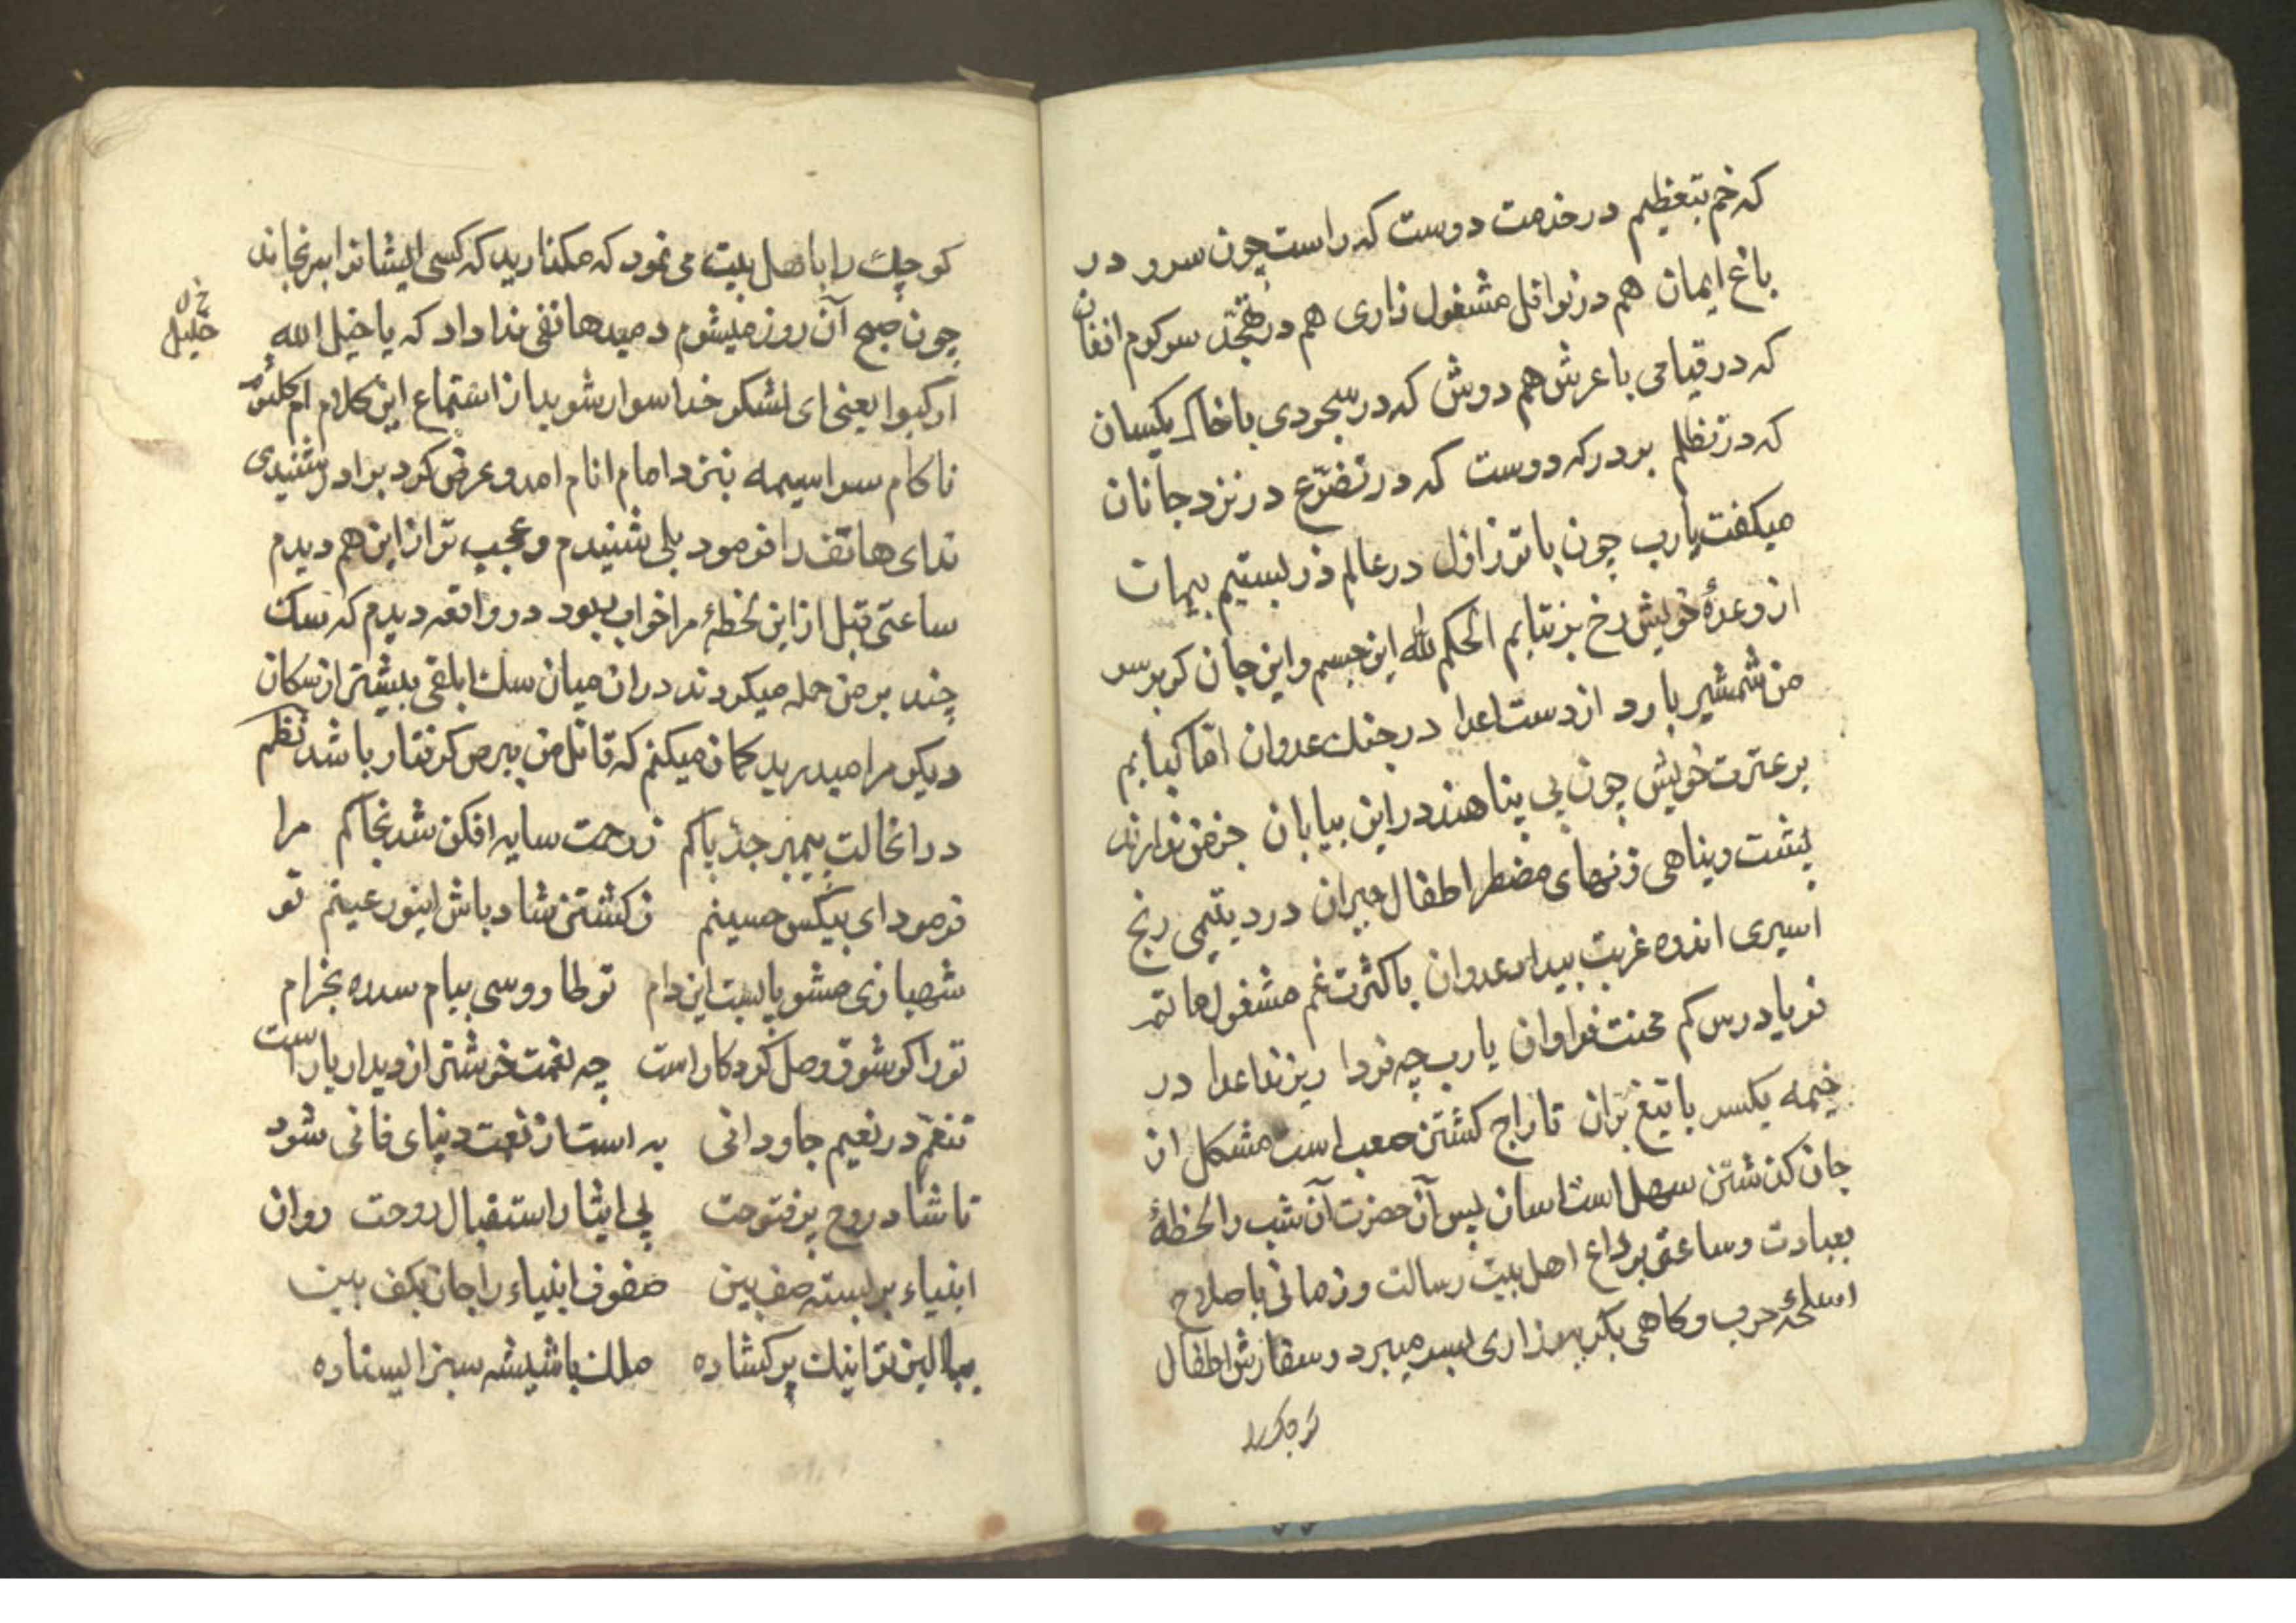 که خم بتعظیم در خدمت دوست که راست چون سرو در
باغ ایمان هم در نوافل مشغول زاری هم در تهجد سرکرم افغان
که در قیامی با عرش هم دوش که در سجودی با خاک یکسان
که در تظلم بر درکه دوست که در تضرّع در نزد جانان
میکفت یارب چون با تو ز اول در عالم ذر بستیم پیمان
از وعدهٔ خویش رخ بر نتابم الحکم لله این جسم و این جان کر بر سر
من شمشیر بارد از دست اعدا در جنک عدوان امّا کبابم
بر عترت خویش چون بی پناهند در این بیابان جز من ندارند
پشت و پناهی زنهای مضطر اطفال حیران درد یتیمی رنج
اسیری اندوه غربت بیداد عدوان با کثرت غم مشغول ماتم
فریادرس کم محنت فراوان یارب چه فردا ریزند اعدا در
خیمه یکسر با تیغ بران تاراج کشتن صعب است مشکل از
جان کذشتن سهل است اسان پس آن حضرت آن شب را لحظهٔ
بعبادت و ساعتی بوداع اهل بیت رسالت و زمانی باصلاح
اسلحهٔ حرب و کاهی بکریه و زاری بسر میبرد و سفارش اطفال
کوچک را
کوچک را باهل بیت می نمود که مکذارید که کسی ایشانرا برنجاند
چون صبح آن روز میشوم دمید هاتفی ندا داد که یا خیل الله
خ ل
خلیل
ارکبوا یعنی ای لشکر خدا سوار شوید از استماع این کلام ام کلثوم
ناکام سراسیمه بنزد امام انام امد و عرض کرد برادر شنیدی
ندای هاتف را فرمود بلی شنیدم و عجیب تر از این هم دیدم
ساعتی قبل از این لحظهٔ مرا خواب ربود در واقعه دیدم که سک
چند بر من حمله میکردند در ان میان سک ابلقی بیشتر از سکان
دیکر مرا میدرید کمان میکنم که قاتل من ببرص کرفتار باشد نظم
در انحالت پیمبر جدّ پاکم ز رحمت سایه افکن شد بخاکم مرا
فرمود ای بیکس حسینم ز کشتن شاد باش اینور عینم تو
شهبازی مشو پابست این دام تو طاووسی ببام سدره بخرام
تو را کر شوق وصل کردکار است چه نعمت خوشتر از دیدار یار است
تنعّم در نعیم جاودانی به است از نعمت دنیای فانی شود
تا شاد روح پرفتوحت پی ایثار استقبال روحت روان
انبیاء بر بسته صف بین صفوف انبیاء را جان بکف بین
ببالین تو اینک پر کشاده ملک با شیشه سبز ایستاده